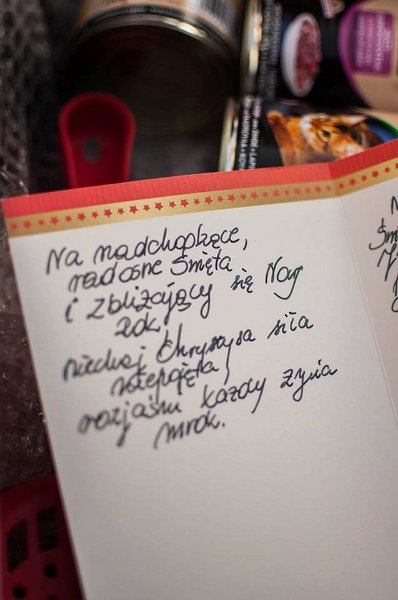 Na nadchodzące,
radosne Święta
i zbliżający się Nowy
Rok!
niechaj Chrystusa siła
niepojęta,
rozjaśni każdy życia
mrok.